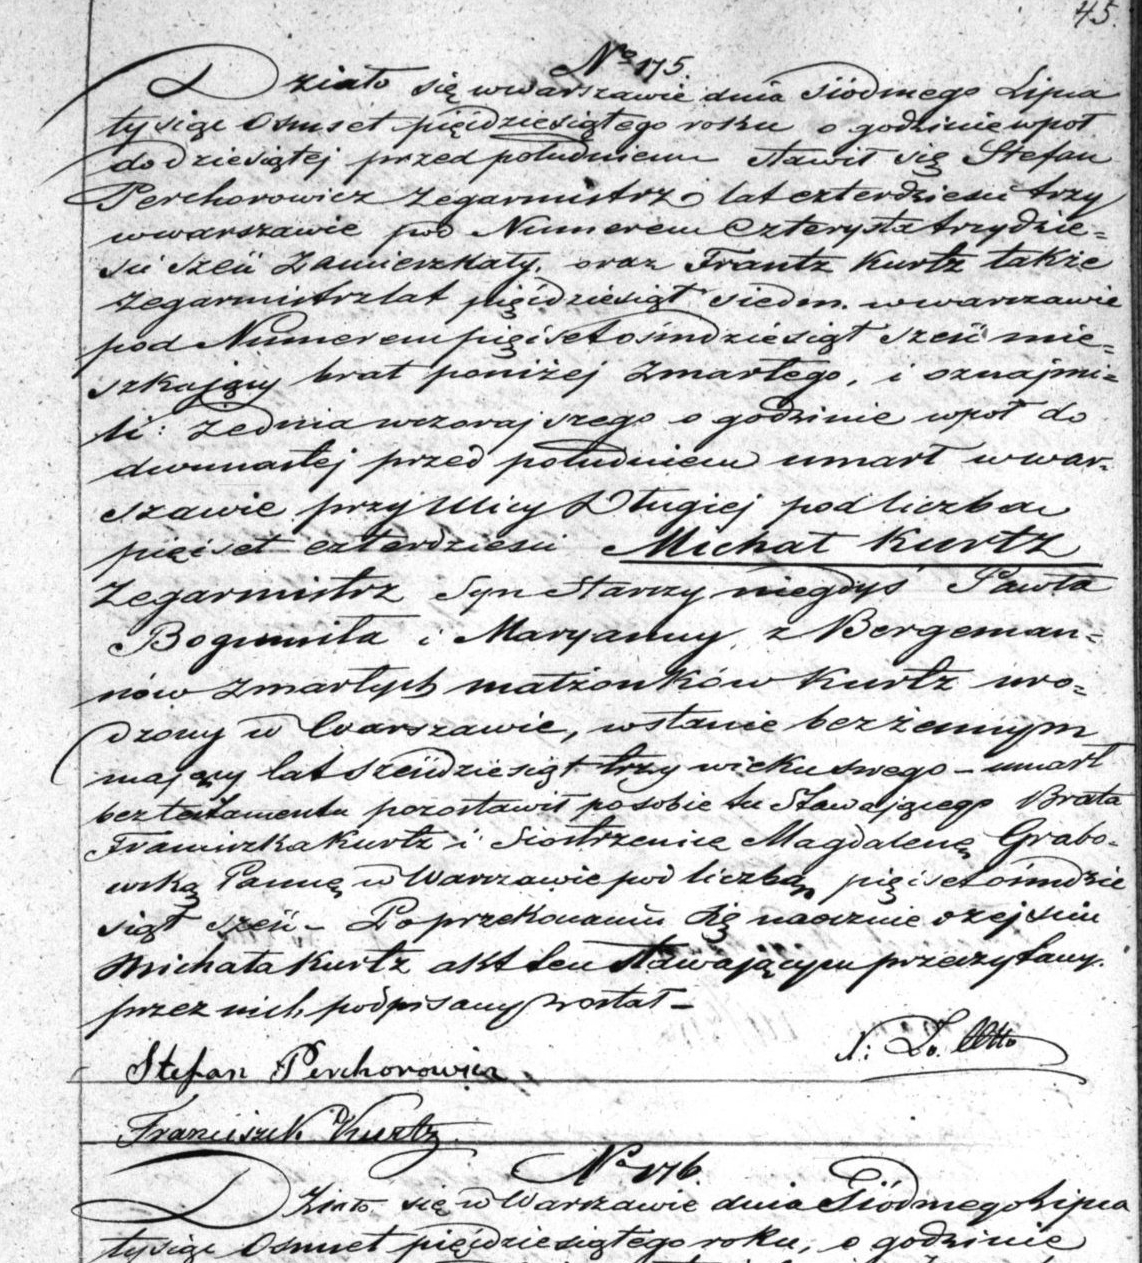 45.
No 175.
Działo się w Warszawie dnia siódmego Lipca
tysiąc Osmset pięćdziesiątego roku o godzinie wpoł
do dziesiątej przed południem stawił się Stefan
Perchorowicz Zegarmistrz lat czterdzieści trzy
w Warszawie pod Numerem Czterysta trzydzie=
ści sześć Zamieszkały, oraz Frantz Kurtz także
zegarmistrz lat pięćdziesiąt siedm. w Warszawie
pod Numerem pięćset ośmdziesiąt sześć mie=
szkający brat poniżej Zmarłego, i oznajmi=
li: że dnia wczorajszego o godzinie wpoł do
dwunastej przed południem umarł w War-
szawie przy Ulicy Długiej pod liczba
pięćset czterdzieści Michał Kurtz
Zegarmistrz Syn Starszy niegdyś Pawła
Bogumiła i Maryanny z Bergeman=
nów zmarłych małżonków Kurtz uro=
dzony w Warszawie, w stanie bezżennym
mający lat sześćdziesiąt trzy wieku swego – umarł
bez testamentu pozostawił po sobie tu Stawającego Brata
Franciszka Kurtz i Siostrzenicę Magdalenę Grabo-
wską Pannę w Warszawie pod liczbą pięćset ośmdzie
siąt sześć – Po przekonaniu się naocznie o zejściu
Michała Kurtz akt ten stawającym przeczytany.
przez nich podpisany został –
Stefan Perchorowicz
X: Lo. Otto
Franciszek Kurtz
No 176.
Działo się w Warszawie dnia Siódmego Lipca
tysiąc Osmset pięćdziesiątego roku, o godzinie